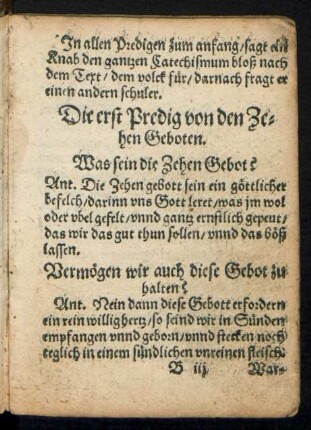 In allen Predigen zum anfang/sagt ein
Knab den gantzen Catechismum bloß nach
dem Text/dem volck für/darnach fragt er
einen andern schuler.
Die erst Predig von den Ze-
hen Geboten.
Was sein die Zehen Gebot?
Ant. Die Zehen gebott sein ein göttlicher
befelch/darinn vns Gott leret/was jm wol
oder vbel gefelt/vnnd gantz ernstlich gepeut/
das wir das gut thun sollen/vnnd das böß
lassen.
Vermögen wir auch diese Gebot zu
halten?
Ant. Nein dann diese Gebott erfordern
ein rein willig hertz/so seind wir in Sünden
empfangen vnnd geborn/vnnd stecken noch
teglich in einem sündlichen vnreinen fleisch.
B iij War-